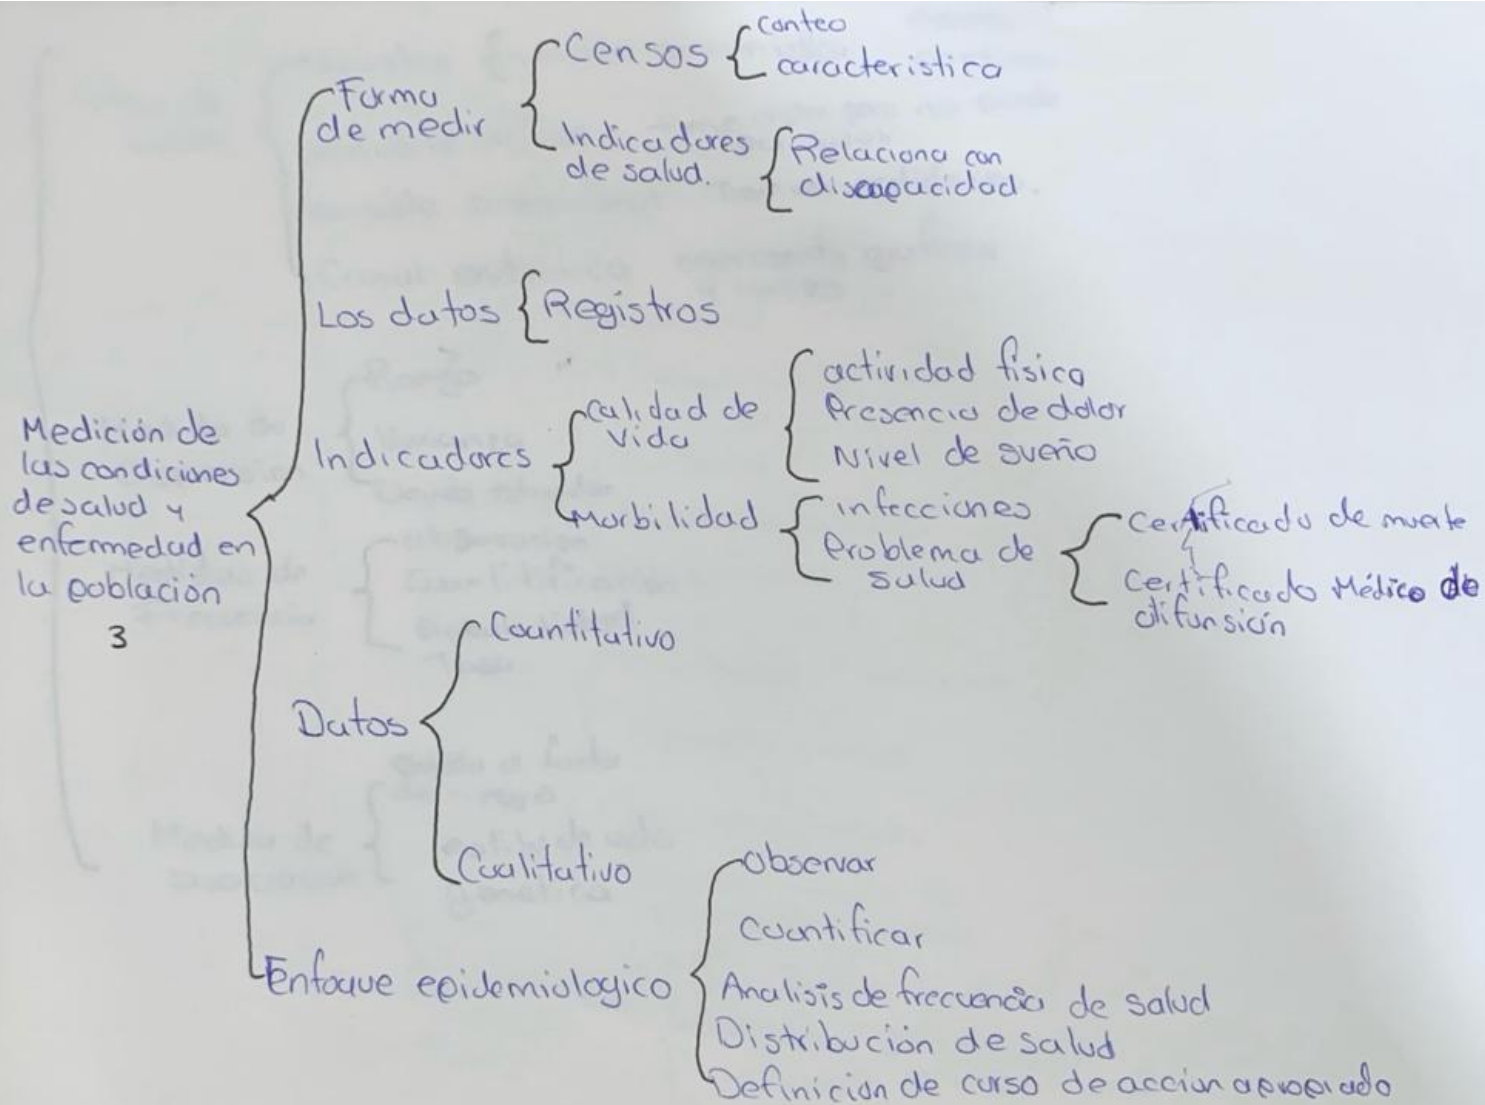 Medición de
las condiciones
de salud y
enfermedad en
la población
3
Forma
de medir
Censos
Conteo
caracteristica
Indicadores
de salud.
Relaciona con
discapacidad
Los datos
Registros
Indicadores
Calidad de
Vida
actividad física
Presencia de dolor
Nivel de sueño
Morbilidad
infecciones
Problema de
salud
Certificado de muerte
Certificado Médico de
difunsión
Datos
Cuantitativo
Cualitativo
Enfoque epidemiologico
Observar
Cuantificar
Analisis de frecuencia de salud
Distribución de salud
Definicion de curso de accion apropiado